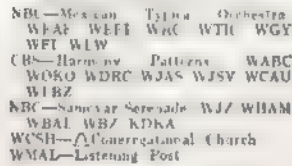 NBC—Mexican Typica Orchestra
WEAF WEEI WRC WTIC WGY
WFI WLW
CBS—Harmony Patterns WABC
WOKO WDRC WJAS WJSV WCAU
WLBZ
NBC—Samovar Serenade WJZ WHAM
WBAL WBZ KDKA
WCSH— Congregational Church
WMAL—Listening Post